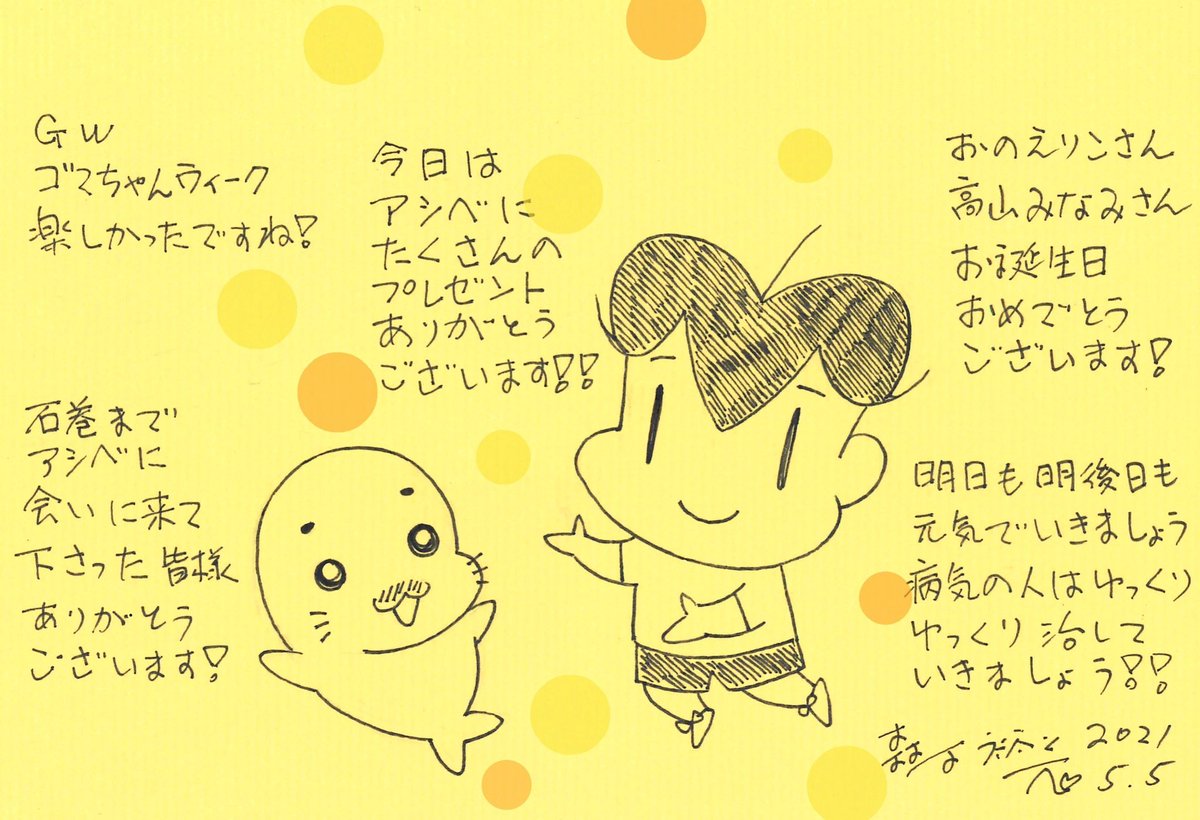 GW
ゴマちゃんウィーク
楽しかったですね!
今日は
アシベに
たくさんの
プレゼント
ありがとう
ございます!!
おのえりこさん
高山みなみさん
お誕生日
おめでとう
ございます!
石巻まで
アシベに
会いに来て
下さった皆様
ありがとう
ございます!
明日も明後日も
元気でいきましょう
病気の人はゆっくり
ゆっくり治して
いきましょう!!
2021
5.5